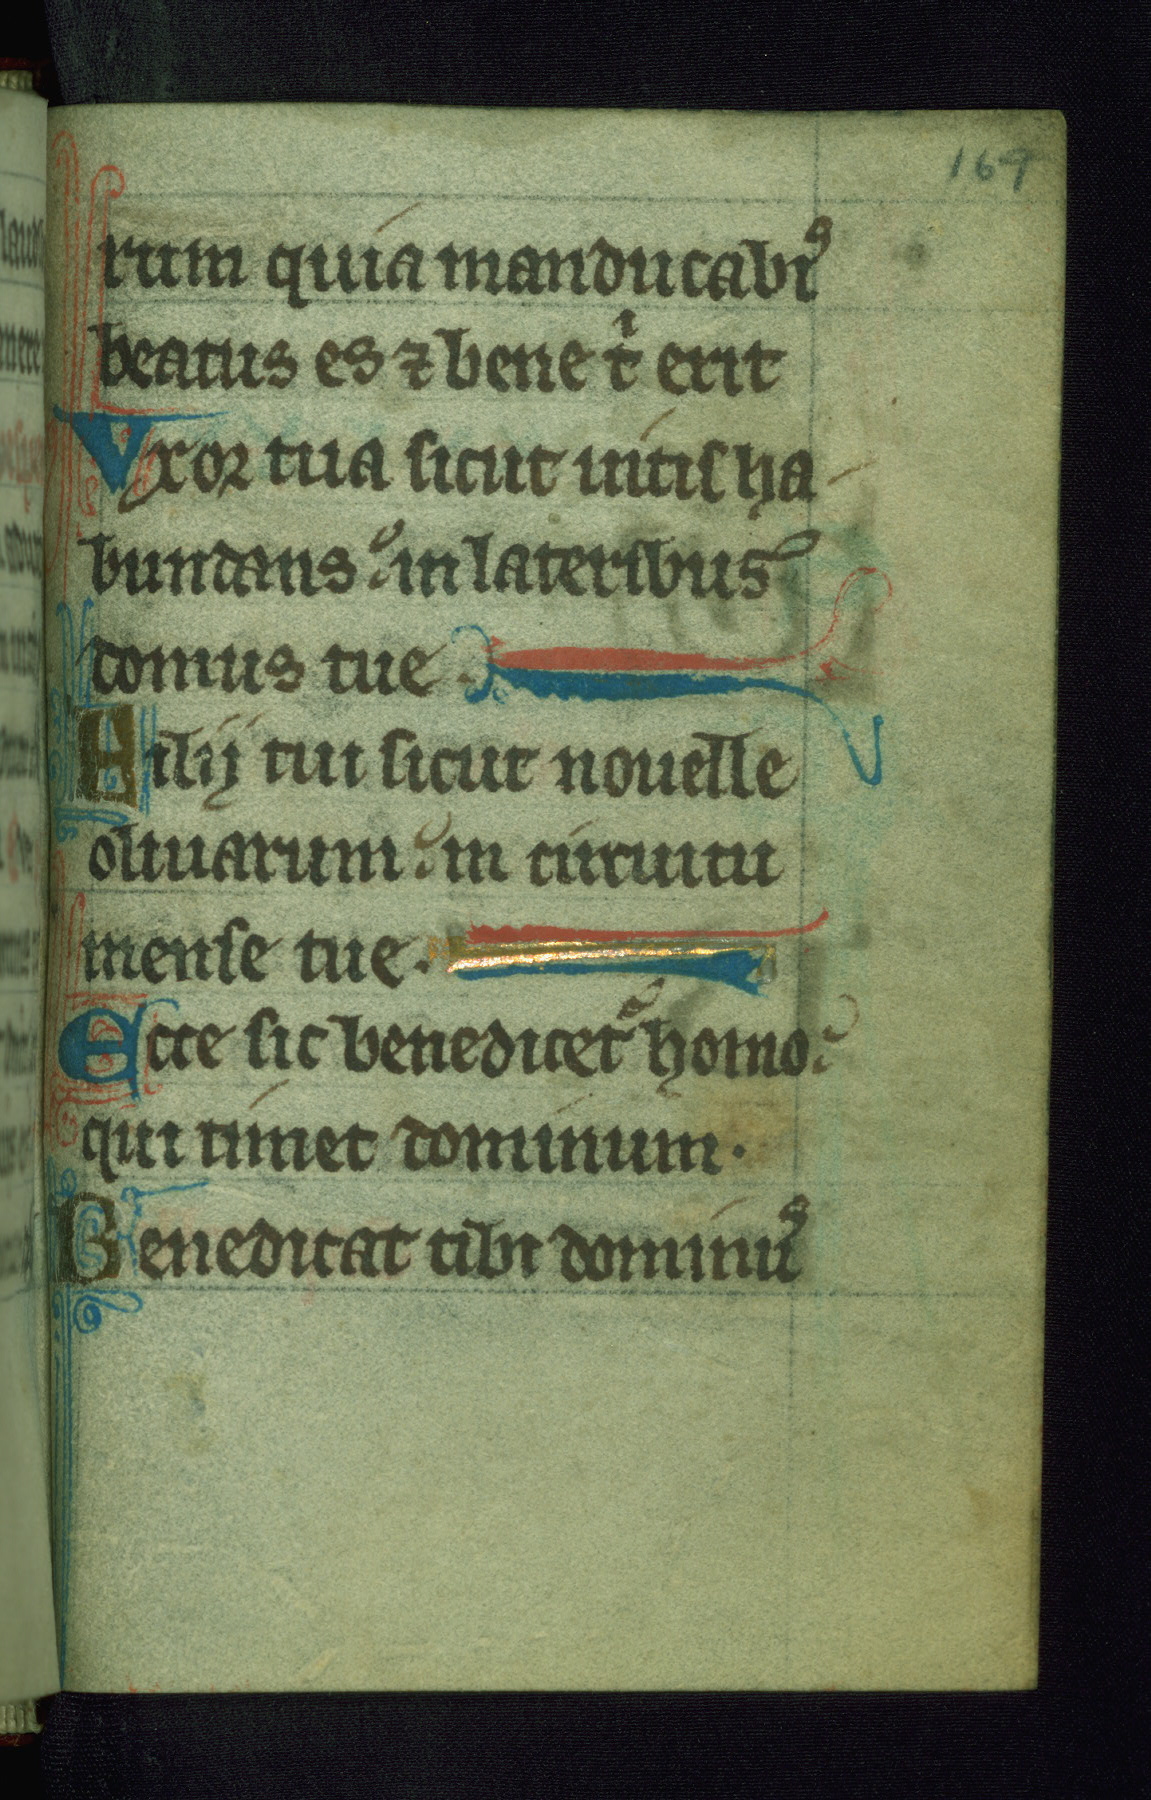 169
rum quia manducabiˢ
beatus es ⁊ bene tⁱ erit
Vxor tua sicut uitis ha
bundans in lateribus
domus tue
Filij tui sicut nouelle
oliuarum in circuitu
mense tue.
Ecce sic benedicet᷑ homo
qui timet dominum.
Benedicat tibi dominuˢ